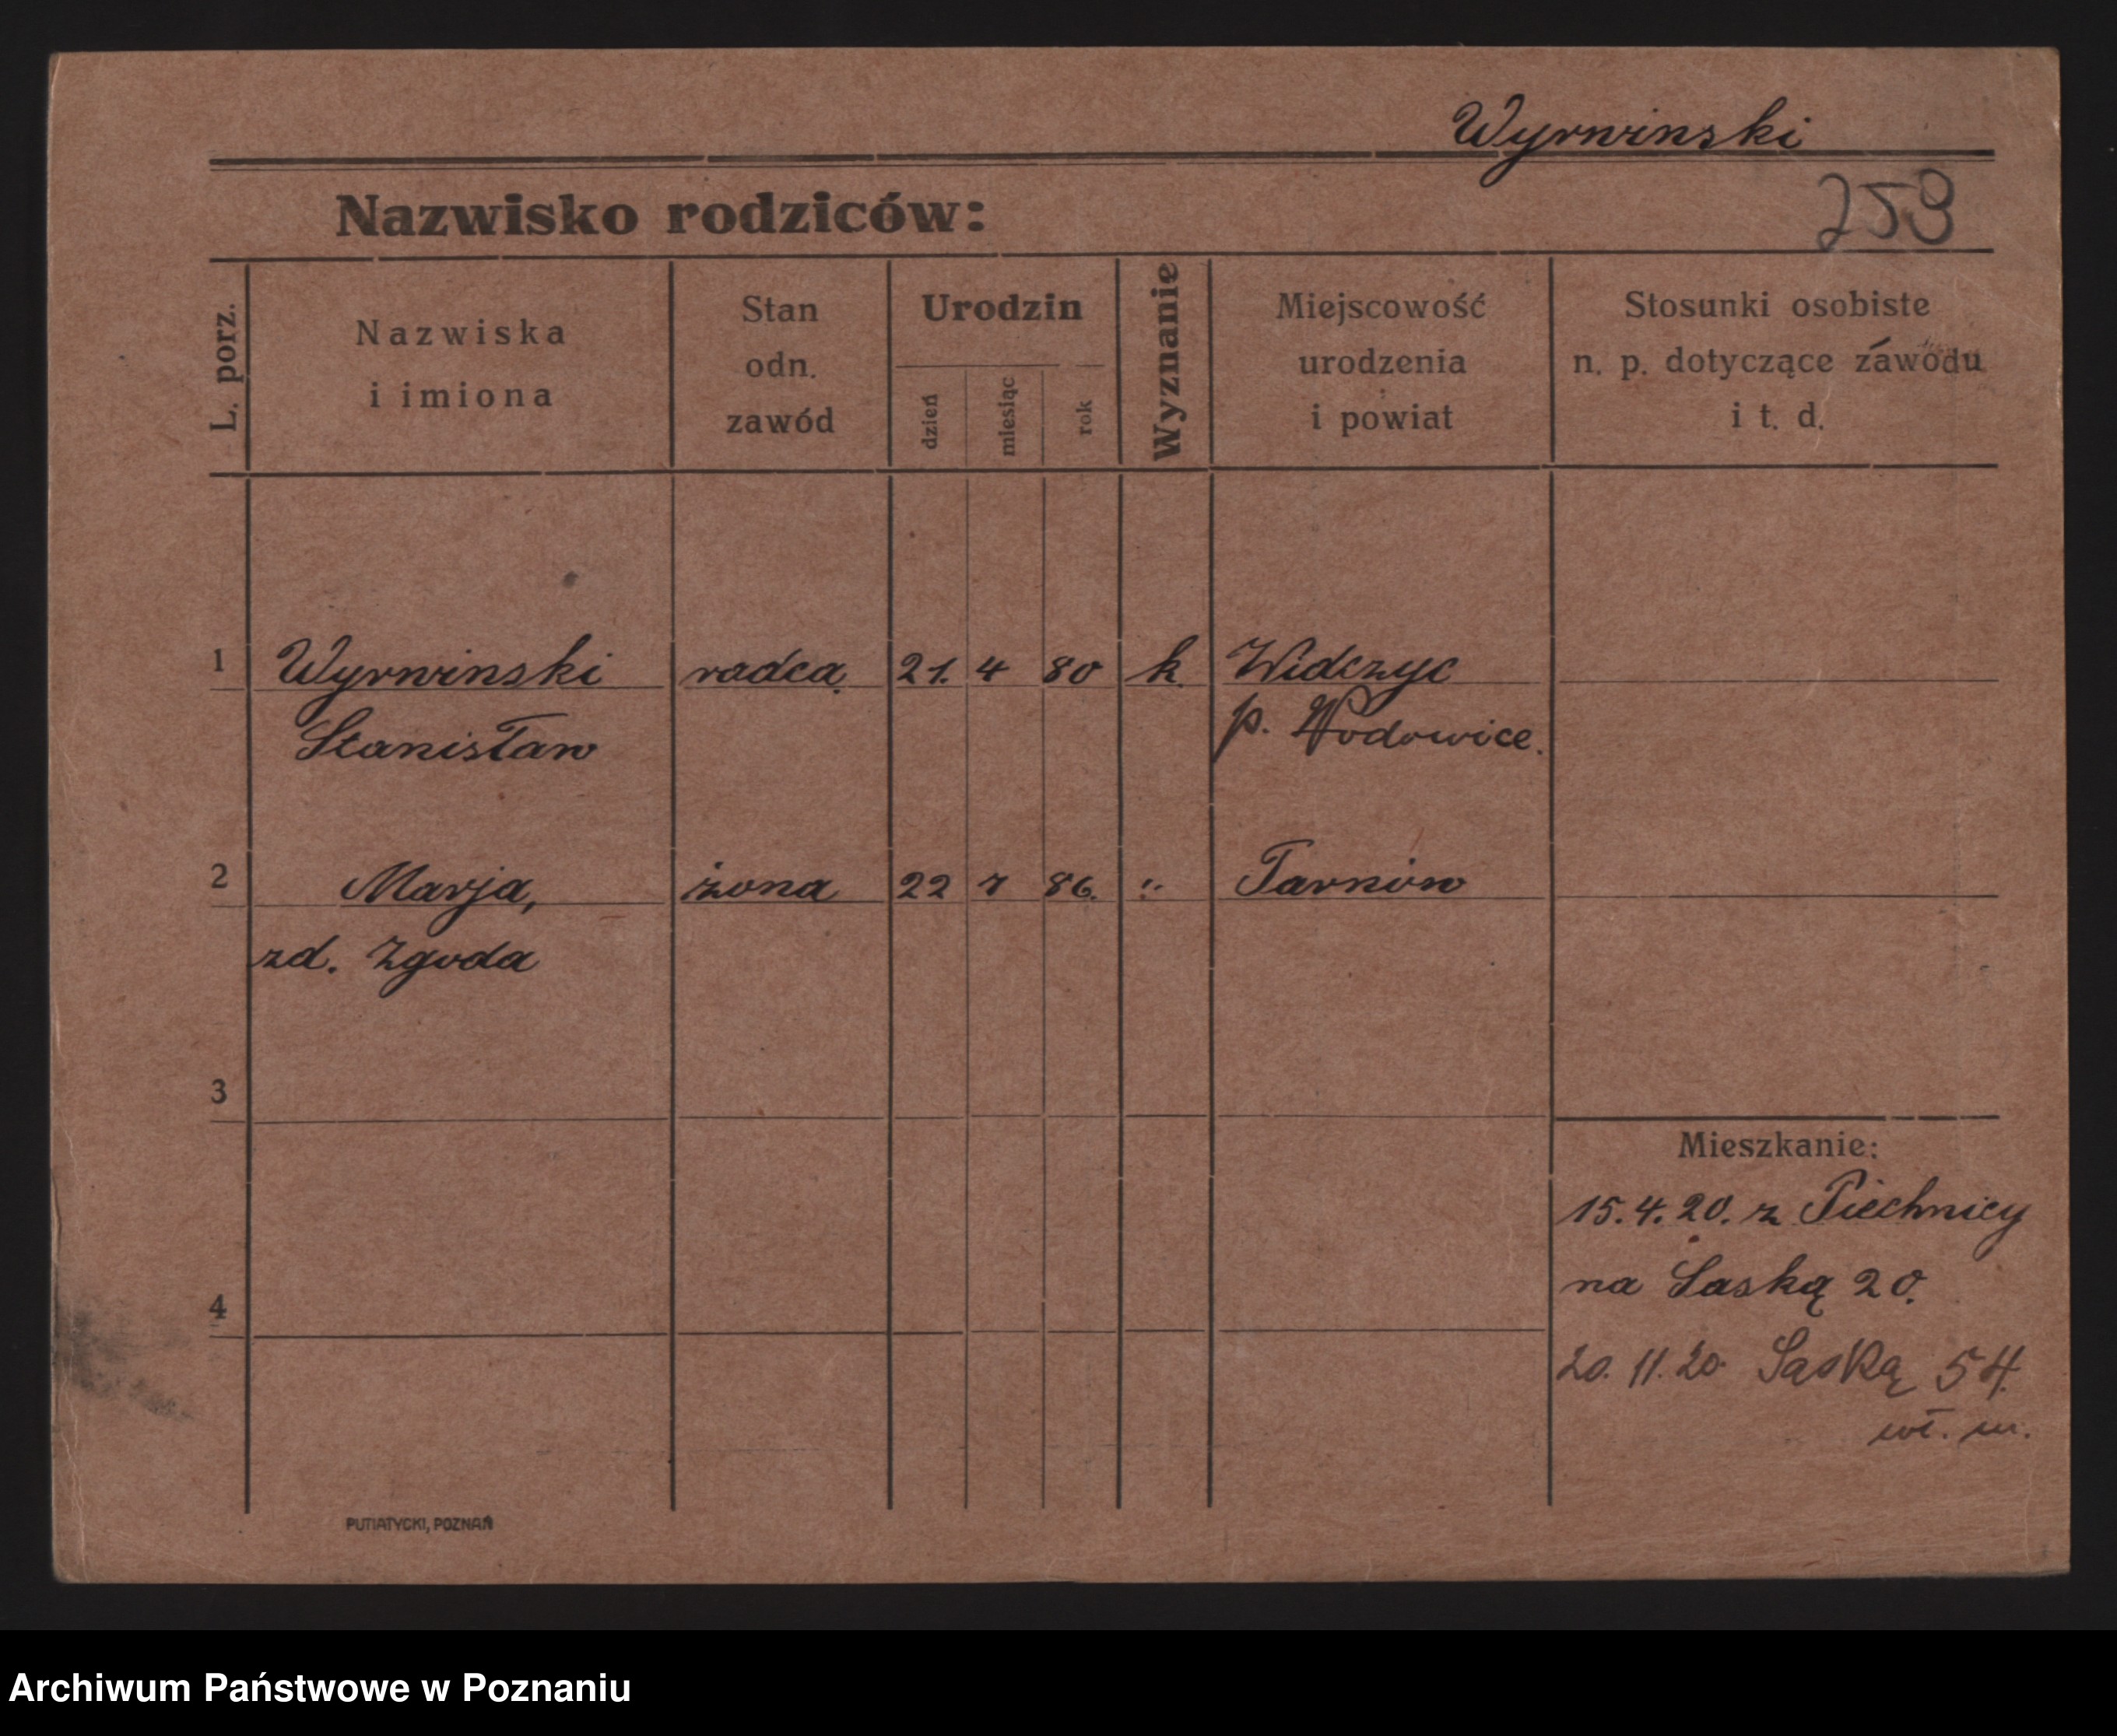 Wyrwinski
Nazwisko rodziców:
259
L. porz.
Nazwiska
i imiona
Stan
odn.
zawód
Urodzin
dzień
miesiąc
rok
Wyznanie
Miejscowość
urodzenia
i powiat
Stosunki osobiste
n. p. dotyczące zawodu
i t. d.
1 Wyrwinski radca 21. 4 80 k. Widczyc
Stanisław p. Wodowice.
2 Marja, żona 22 7 86. ". Tarnów
zd. Zgoda
3
4
Mieszkanie:
15.4.20. z Piechnicy
na Saską 20.
20.11.20 Saską 54.
wł. m.
PUTIATYCKI, POZNAŃ
Archiwum Państwowe w Poznaniu